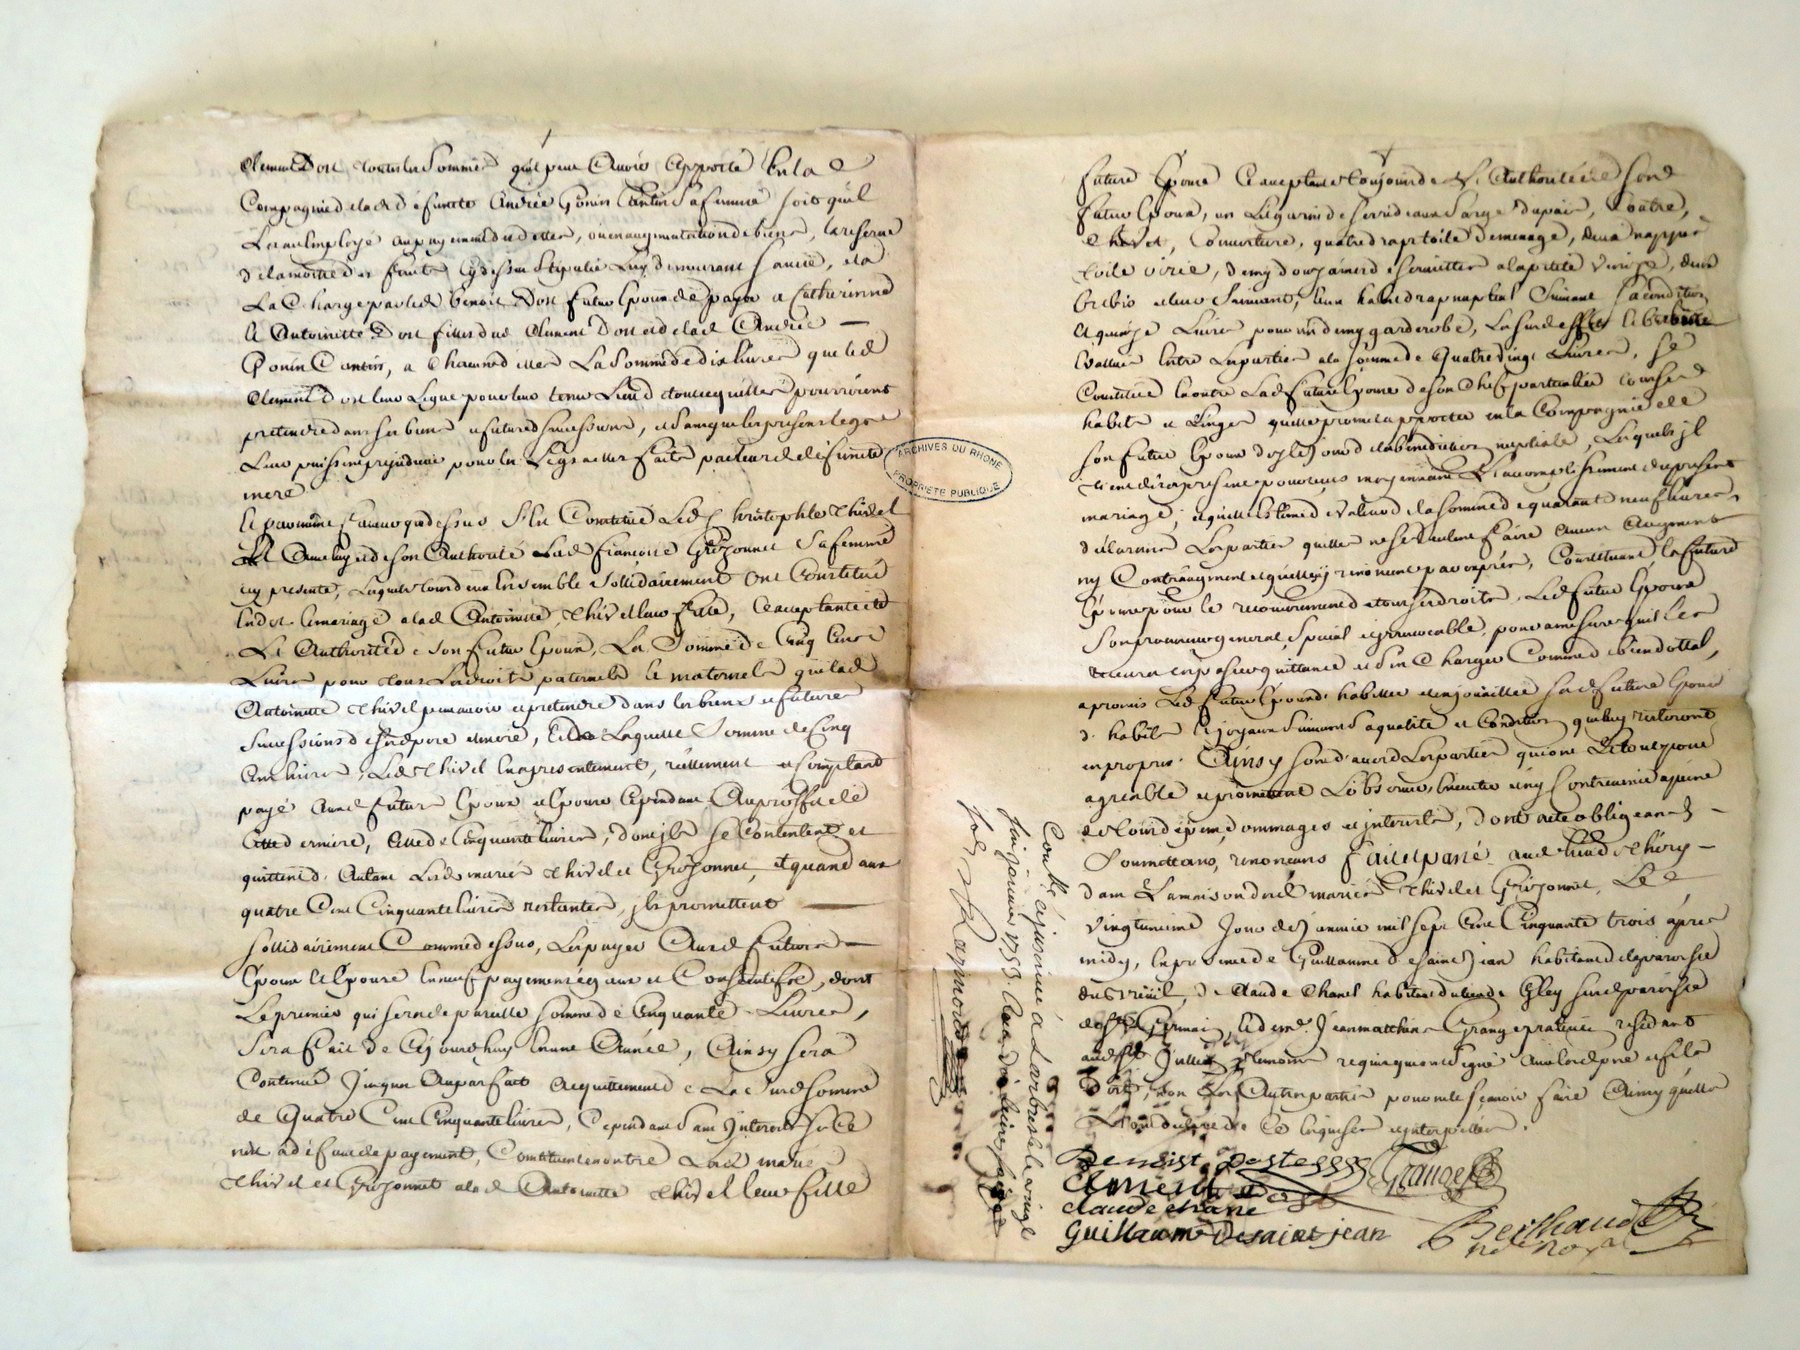 Clement Dost toutes les sommes qu'il peut avoir apporté en la
Compagnie de lad défuncte Andrée Gonin Cantin sa femme soit qu'il
Les au Employé au payement de dettes, ou en augmentation de biens, la reserve
de la moitié des fruits cy dessus stipulée luy demeurant sauve, et à
La Charge par led Benoit Dost futur Epoux de payer a Catherinne
et Antoinette Dost filles dud Clement Dost et de lad Andrée
Gonin Cantin, a Chacune d'elles La somme de dix livres que led
Clement Dost leur Legue pour leur tenir Lieu de tout ce qu'elles pourroient
pretendre dans ses biens et future succession, et sans que les presents legs
Leur puissent prejudicier pour les Legs a elles faits par leurd deffuncte
mere
Et par même faveur que dessus s'Est Constitué Led Christophle Thivel
Et avec luy et de son Authorité Lad françoise Grizonnet sa femme
icy presente, Lesquels tous deux Ensemble solidairement ont Constitué
En dot et mariage a lad Antoinette Thivel leur fille, acceptante de
Le Authorité de son futur Epoux, La somme de Cinq Cents
Livres pour tous ses droits paternels et maternels que lad
Antoinette Thivel peut avoir et pretendre dans les biens et futures
successions de sesd pere et mere, de Laquelle somme de Cinq
Cents livres, Led Thivel En presentement, réellement et Comptant
payé auxd futurs Epoux et Epouse Cependant au proffit de
Cette derniere, celle de Cinquante livres, dont ils se Contentent et
quittent d'autant Lesd mariés Thivel et Grizonnet, et quand aux
quatre Cent Cinquante livres restantes, ils promettent
sollidairement Comme dessus, Les payer auxd futurs
Epoux et Epouse En neuf payements égaux et Consécutifs, dont
Le premier qui sera de pareille somme de Cinquante Livres,
sera fait de Cejourd'huy En une Année, Ainsy sera
Continué Jusques au parfait acquittement de Lad susd somme
de quatre Cent Cinquante livres, Cependant sans Interests si ce
n'est a défaut de payement, Constituent en outre Lesd mariés
Thivel et Grizonnet a lad Antoinette Thivel leur fille
future Epouse acceptante toujours de L'Authorité de sond
futur Epoux, un
Chevet, Couverture, quatre draps toile de menage, deux nappes
toile demy douzaine de serviettes a la petite Venise, deux
brebis et leur suivant, leur habit drap nuptial suivant sa condition
et quinze Livres pour un demy garderobe, Les susd effets et brebis
Evalués Entre Les parties a la somme de quatre vingt Livres, se
Constitue En outre Lad future Epouse de son Chef particulier tous ses
habits et Linges qu'elle promet apporter en la Compagnie de
son futur Epoux des le jour de la benediction nuptiale, Lesquels il
mariage, et qu'elle Estime de valeur de la somme de quarante neuf livres,
declarants Les parties qu'elles ne se veulent faire aucun Augment
ny Contraugment et qu'elles y renoncent par exprés, Constituant la future
Epouse pour le recouvrement de tous ses droits, Led futur Epoux
son procureur general, special et irrevocable, pour a mesure qu'il les
recevra en passer quittance et s'en Charger Comme de bien dottal,
a promis Led futur Epoux d'habiller et enjoailler sad future Epouse
d'habits et joyaux suivant sa qualité et Condition qui luy resteront
en propres. Ainsy sont d'accord Les parties qui ont Le tout pour
agreable et promettent L'observer, Executer et n'y Contrevenir a peine
de tous dépens, dommages et interests, dont acte obligeants
soumettants, renonceants fait et passé aud lieu de Thizy
dans La maison desd mariés Thivel et Grizonnet, Le
vingtunieme Jour de Janvier mil sept Cent Cinquante trois aprés
midy, En presence de Guillaume de saint Jean habitant de la paroisse
du Breüil, de Claude Chanel habitant du lieu de Glay susd paroisse
de st Germain, Et de me Jean matthieu Grange praticien residant
aud st Jullien temoins requis qui ont signé avec led pere et fils
Dost, non Les Autres parties pour ne le sçavoir faire Ainsy qu'elles
L'ont declaré de Ce Enquises et interpellées.
Benoist Dost
Clement Dost
Grange
Claude Chanel
Guillaume Desaint jean
Berthaud
nore royal
Controllé et insinué à Larbresle le vingt
six janvier 1753. Reçu dix livres
ARCHIVES DU RHONE
PROPRIETE PUBLIQUE